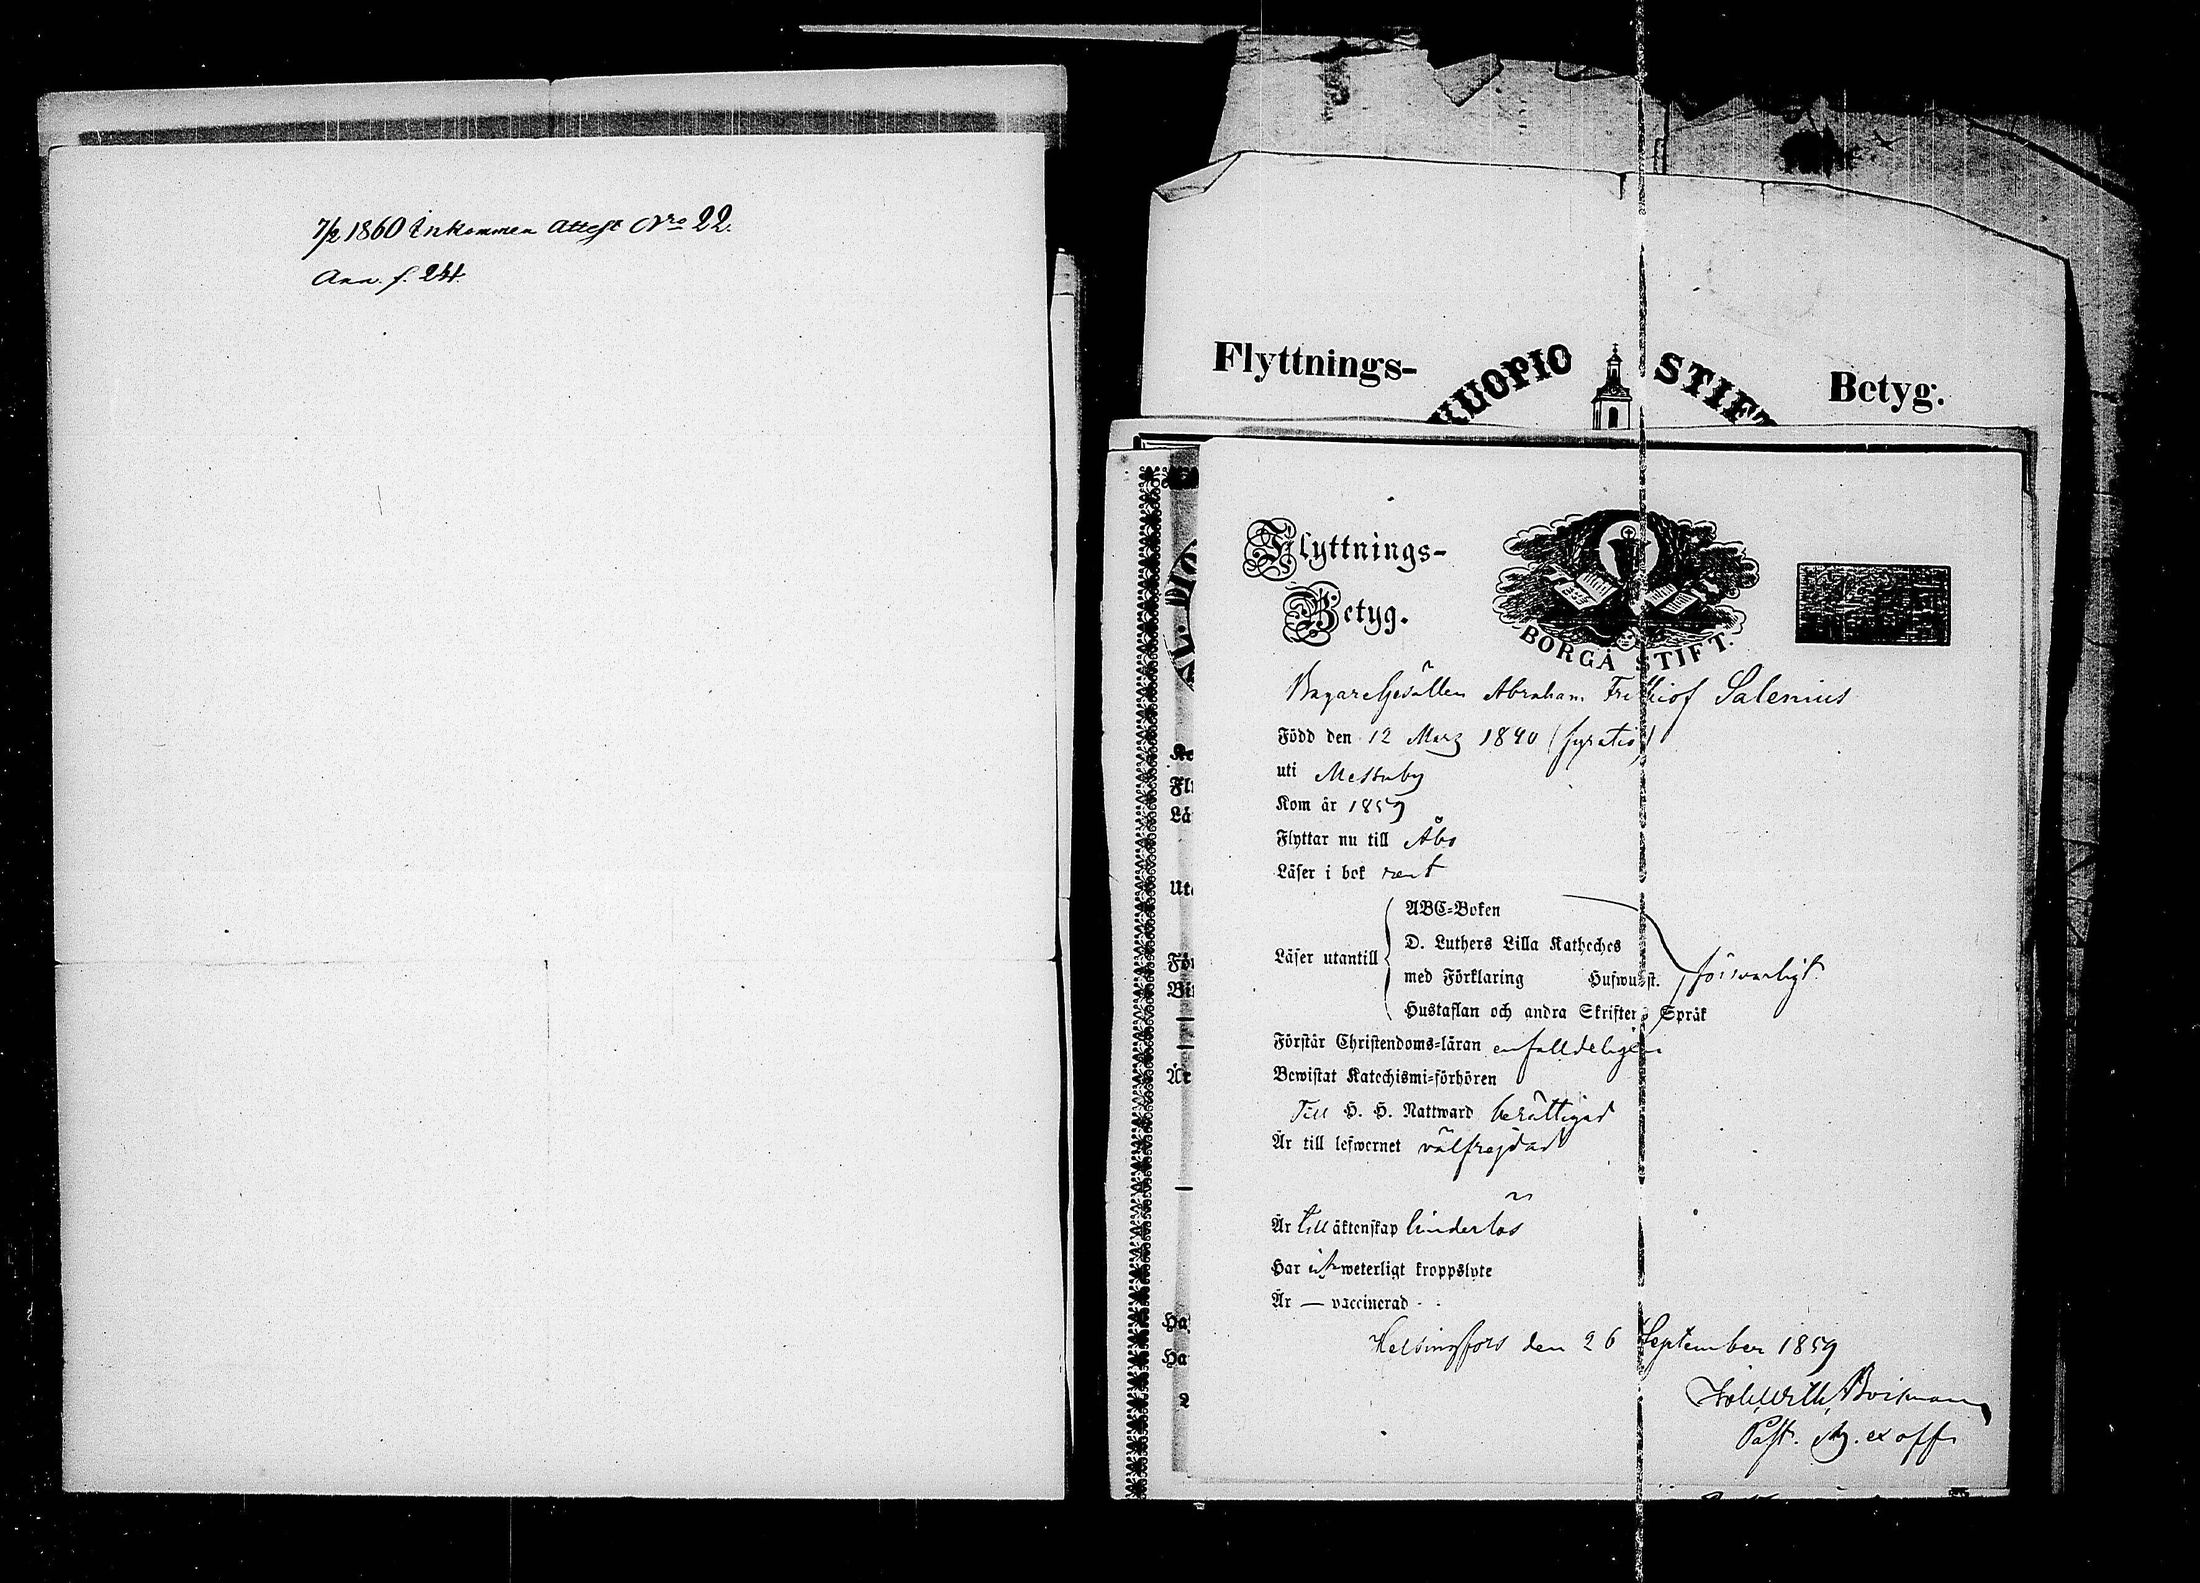 7/2 1860 Inkommen Attest Nro 22.
Ann. f. 24.
Flyttnings- KUOPIO STIFT Betyg.
Flyttnings-
Betyg.
BORGÅ STIFT.
Bagare Gesällen Abraham Frithiof Salenius
Född den 12 Marz 1840 (fyratio)
uti Messuby
Kom år 1859
Flyttar nu till Åbo
Läser i bok rent
Läser utantill
ABC-Boken
D. Luthers Lilla Katheches
med Förklaring Huswust.
Hustaflan och andra Skriftens Språk
försvarligt
Förstår Christendoms-läran enfalldeligen
Bewistat Katechismi-förhören
Till H. H. Nattward berättigad
Är till lefwernet välfrejdad
Är till äktenskap hinderlös
Har ick weterligt kroppslyte
Är — vaccinerad
Helsingfors den 26 September 1859
Past. Adj. ex off.
Fl
Lä
Ut
För
Bi
Är
Ha
Ha